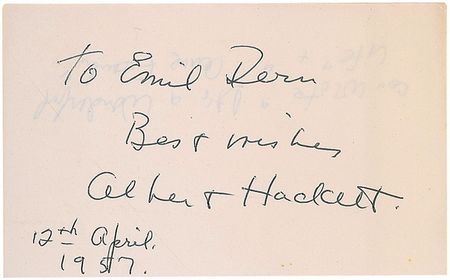 To Emil Dern
Best wishes
Albert Hackett.
12th April.
1957.